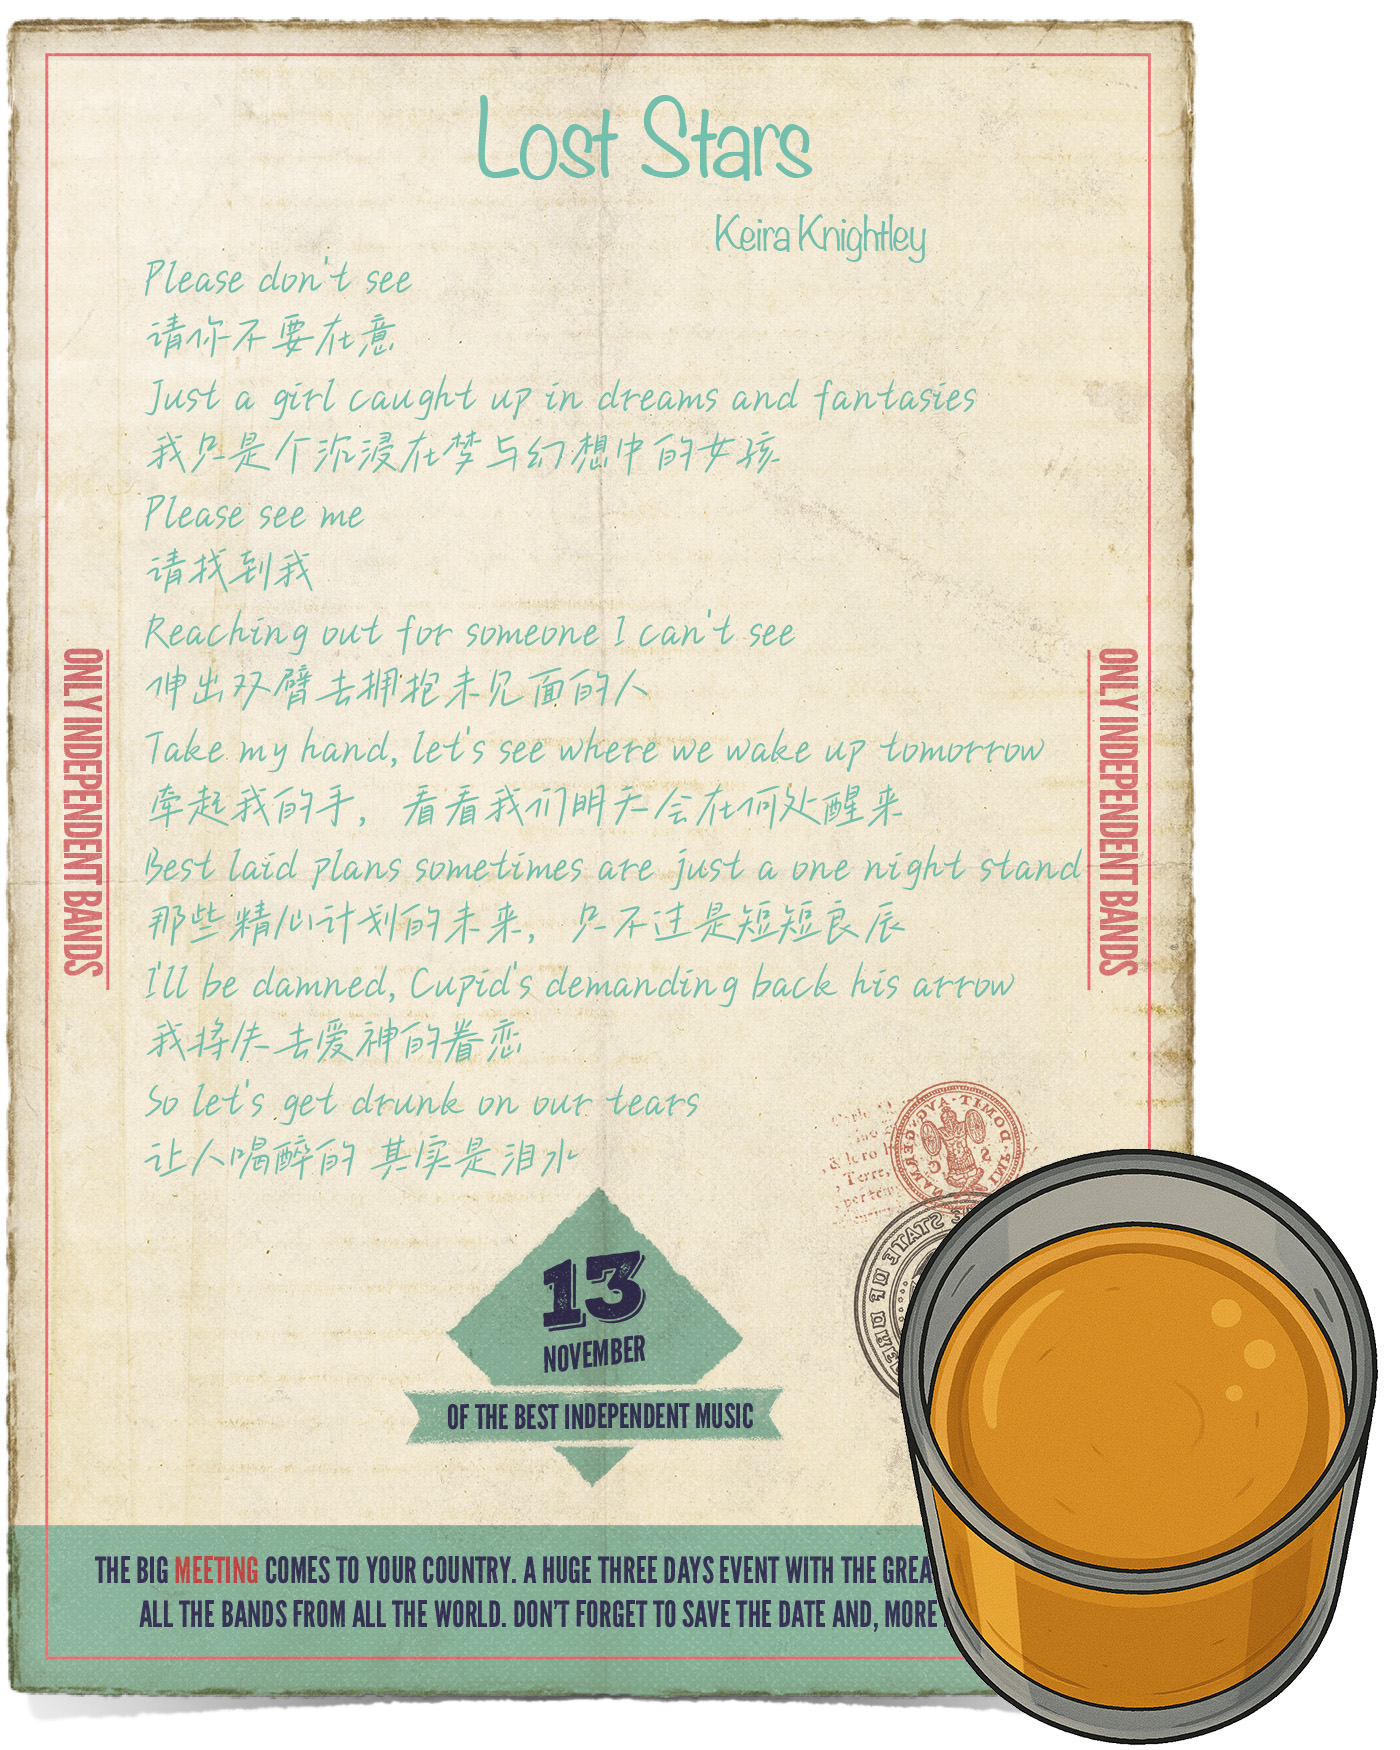 Lost Stars
Keira Knightley
Please don't see
请你不要在意
Just a girl caught up in dreams and fantasies
我只是个沉浸在梦与幻想中的女孩
Please see me
请找到我
Reaching out for someone I can't see
伸出双臂去拥抱未见面的人
Take my hand, let's see where we wake up tomorrow
牵起我的手， 看看我们明天会在何处醒来
Best laid plans sometimes are just a one night stand
那些精心计划的未来， 只不过是短短良辰
I'll be damned, Cupid's demanding back his arrow
我将失去爱神的眷恋
So let's get drunk on our tears
让人喝醉的 其实是泪水
ONLY INDEPENDENT BANDS
ONLY INDEPENDENT BANDS
13
NOVEMBER
OF THE BEST INDEPENDENT MUSIC
THE BIG MEETING COMES TO YOUR COUNTRY. A HUGE THREE DAYS EVENT WITH THE
ALL THE BANDS FROM ALL THE WORLD. DON'T FORGET TO SAVE THE DATE AND, MORE